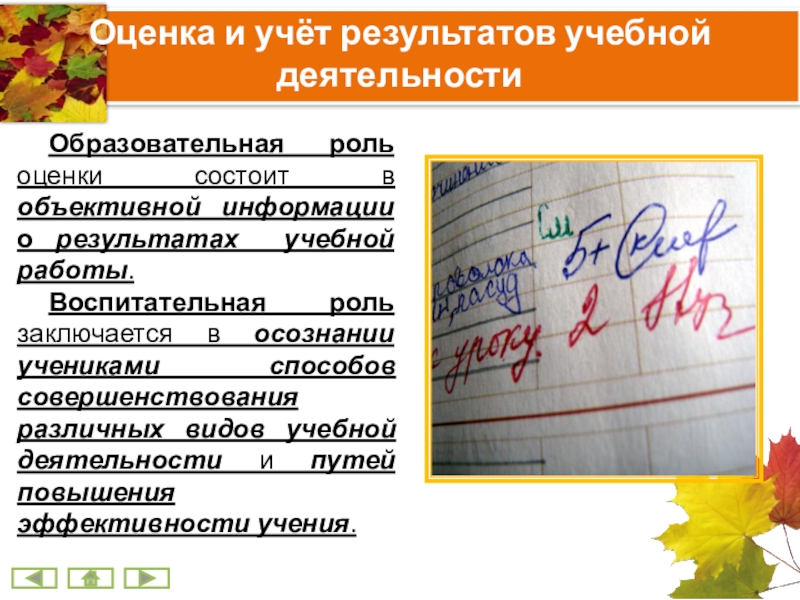 Оценка и учёт результатов учебной
деятельности
Образовательная роль
оценки состоит в
объективной информации
о результатах учебной
работы.
Воспитательная роль
заключается в осознании
учениками способов
совершенствования
различных видов учебной
деятельности и путей
повышения
эффективности учения.
См 5+
уроку. 2